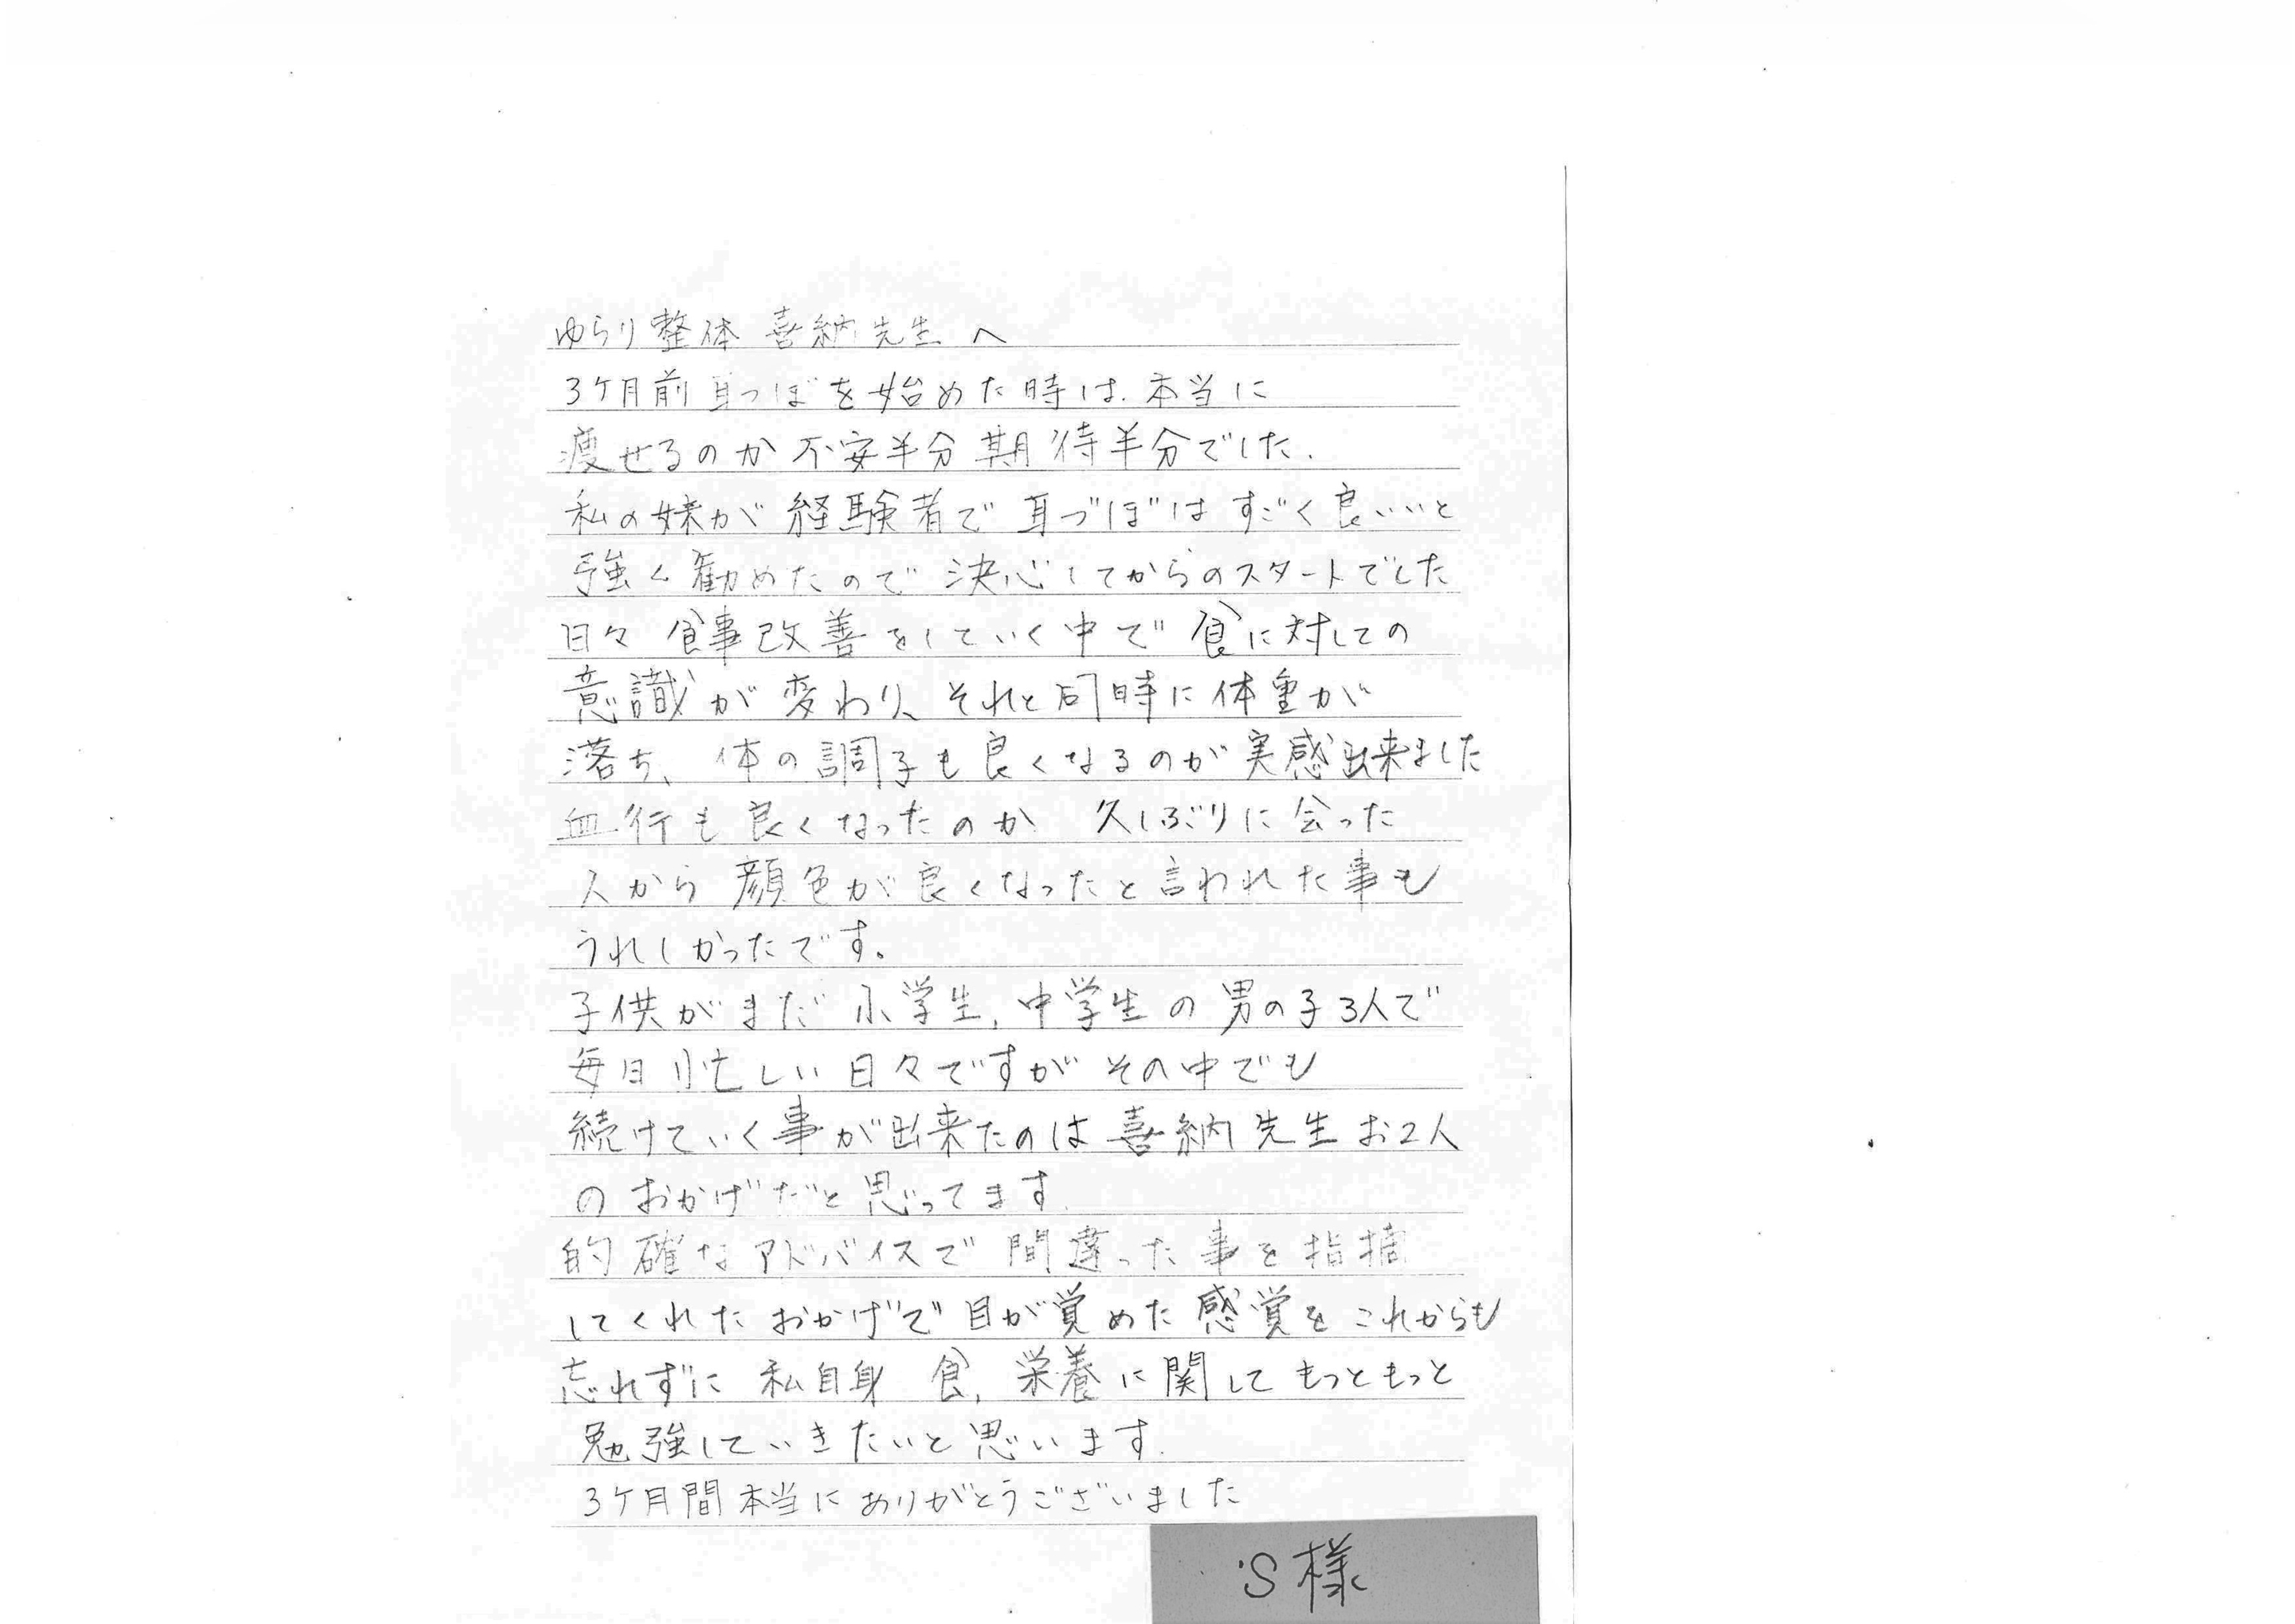 ゆらり整体 喜納先生へ
3ヶ月前耳つぼを始めた時は.本当に
痩せるのか不安半分期待半分でした.
私の妹が経験者で耳づぼはすごく良いいと
強く勧めたので決心してからのスタートでした
日々食事改善をしていく中で食に対しての
意識が変わり、それと同時に体重が
落ち、体の調子も良くなるのが実感出来ました
血行も良くなったのか 久しぶりに会った
人から顔色が良くなったと言われた事も
うれしかったです。
子供がまだ小学生,中学生の男の子3人で
毎日忙しい日々ですがその中でも
続けていく事が出来たのは喜納先生お2人
のおかげだと思ってます.
的確なアドバイスで間違った事を指摘
してくれたおかげで目が覚めた感覚をこれからも
忘れずに私自身 食,栄養に関してもっともっと
勉強していきたいと思います.
3ヶ月間本当にありがとうございました
S様